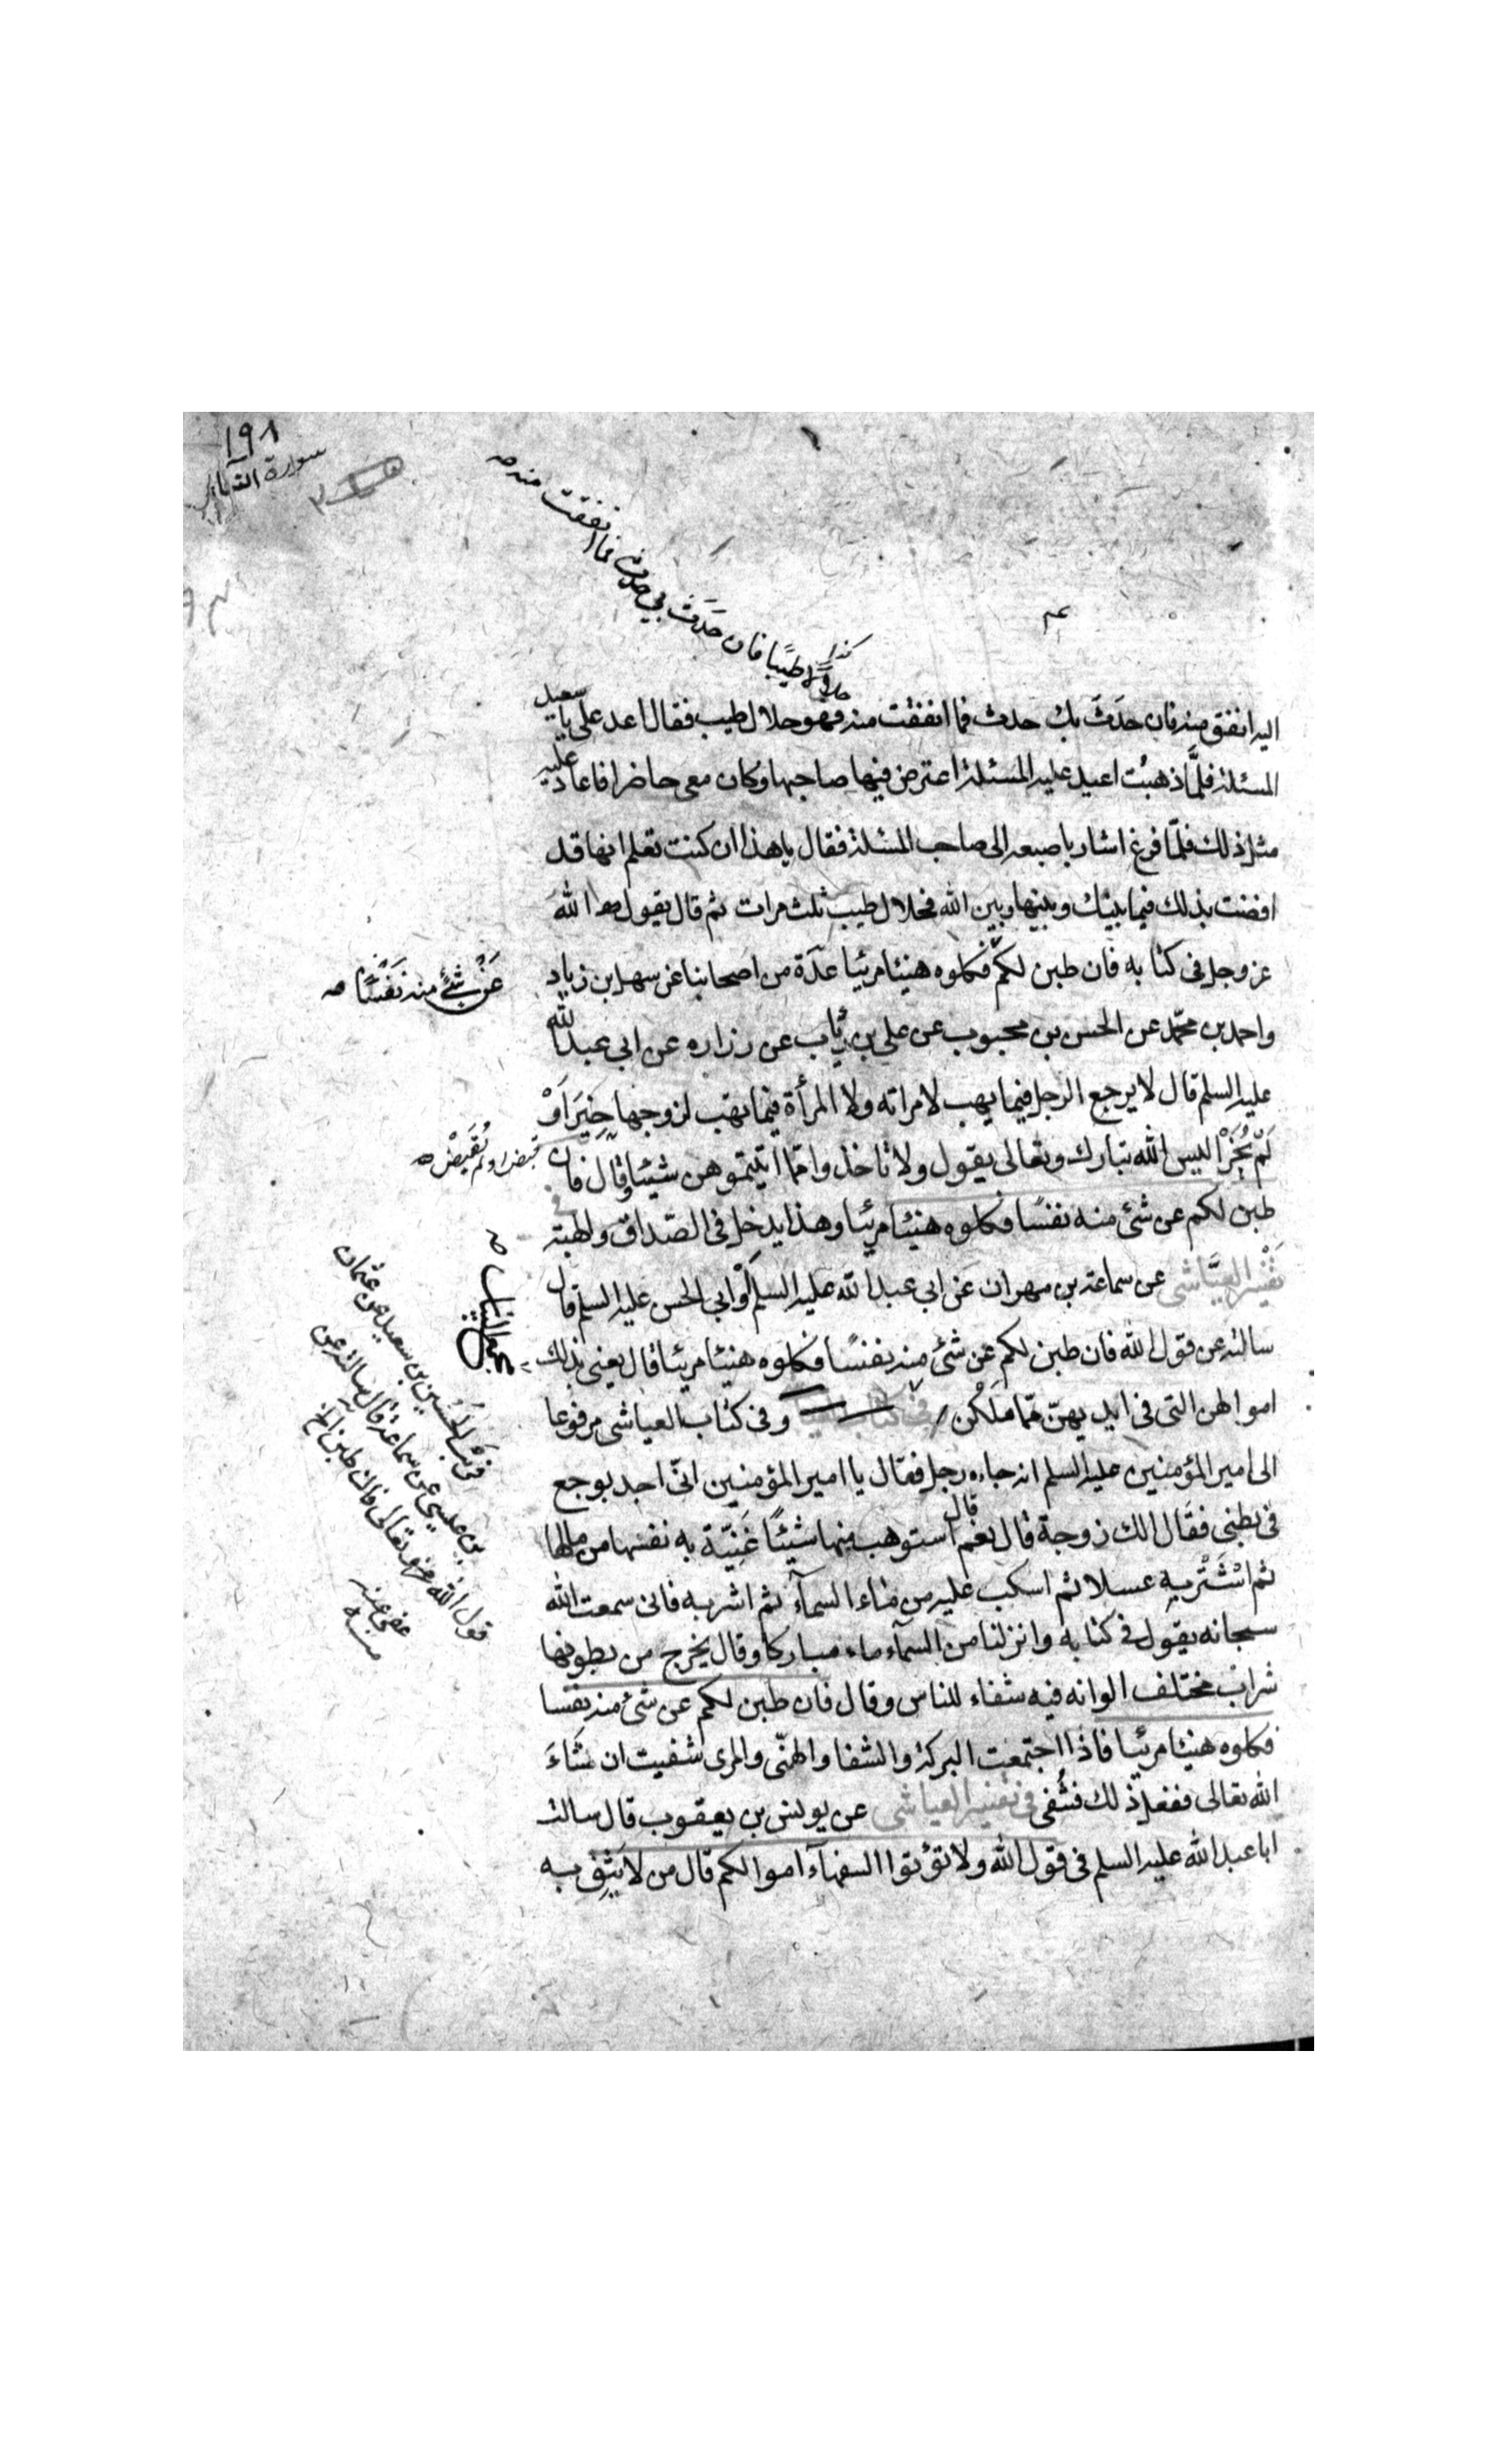 ١٩٨
سورة النساء
حلالا طيبا فان حدث بي حدث فما انفقت منه صح
كذا
اليه انفق منه فان حدَثَ بك حدث فما انفقت منه فهو حلال طيب فقال اعد على يا سعيد
المسئلة فلمَّا ذهبت اعيد عليه المسئلة اعترض فيها صاحبها وكان معى حاضرا فاعاد عليه
مثل ذلك فلمّا فرغ اشار باصبعه الى صاحب المسئلة فقال يا هذا ان كنت تعلم انها قد
افضت بذلك فيما بينك وبينها وبين الله فحلال طيب ثلث مرات ثم قال يقول الله
عز وجل فى كتابه فان طبن لكم فكلوه هنيئا مريئا عدّة من اصحابنا عن سهل بن زياد
عَنْ شَئ منه نَفْسًا صح
واحمد بن محمّد عن الحسن بن محبوب عن على بن رئاب عن زراره عن ابى عبد الله
عليه السلم قال لا يرجع الرجل فيما يهب لامراته ولا المرأة فيما تهب لزوجها حِيزَ اَوْ
لَمْ يُحَزْ اليس الله تبارك وتعالى يقول ولا تاخذوا ممّا اتيتموهن شيئا وقال فان
طبن لكم عن شئ منه نفسًا فكلوه هنيئا مريئا وهذا يدخل فى الصّداق والهبة
تَفْسير العيَّاشى عن سماعة بن مهران عن ابى عبد الله عليه السلم اَوْ ابى الحسن عليه السلم قال
سالته عن قول الله فان طبن لكم عن شئ منه نفسًا فكلوه هنيئا مريئا قال يعنى بذلك
اموالهن التى فى ايديهنّ ممّا مَلَكْن وفى كتاب العياشى مرفوعا
الى امير المؤمنين عليه السلم انه جاءه رجل فقال يا امير المؤمنين انّى اجد بوجع
فى بطنى فقال الك زوجة قال نعم قال استوهب منها شيئًا غَنِيّة به نفسها من مالها
ثم اشْتَرِ به عسلا ثم اسكب عليه من ماء السمآء ثم اشربه فانى سمعت الله
سبحانه يقول فى كتابه وانزلنا من السمآء ماء مباركا وقال يخرج من بطونها
شراب مختلف الوانه فيه شفاء للناس وقال فان طبن لكم عن شئ منه نفسا
فكلوه هنيئا مريئا فاذا اجتمعت البركة والشفا والهنّى والمرى شفيت ان شَاءَ
الله تعالى ففعل ذلك فشُفى فى تفسير العياشى عن يونس بن يعقوب قال سالت
ابا عبد الله عليه السلم فى قول الله ولا تؤتوا السفهآء اموالكم قال من لا يَثِق به
قبضها ولم تُقبَضْ صح
الحسين بن سعيد عن عثمان
بن عيسى عن سماعة قال سالته عن
قول الله تعالى فان طبن الخ
عفى عنه